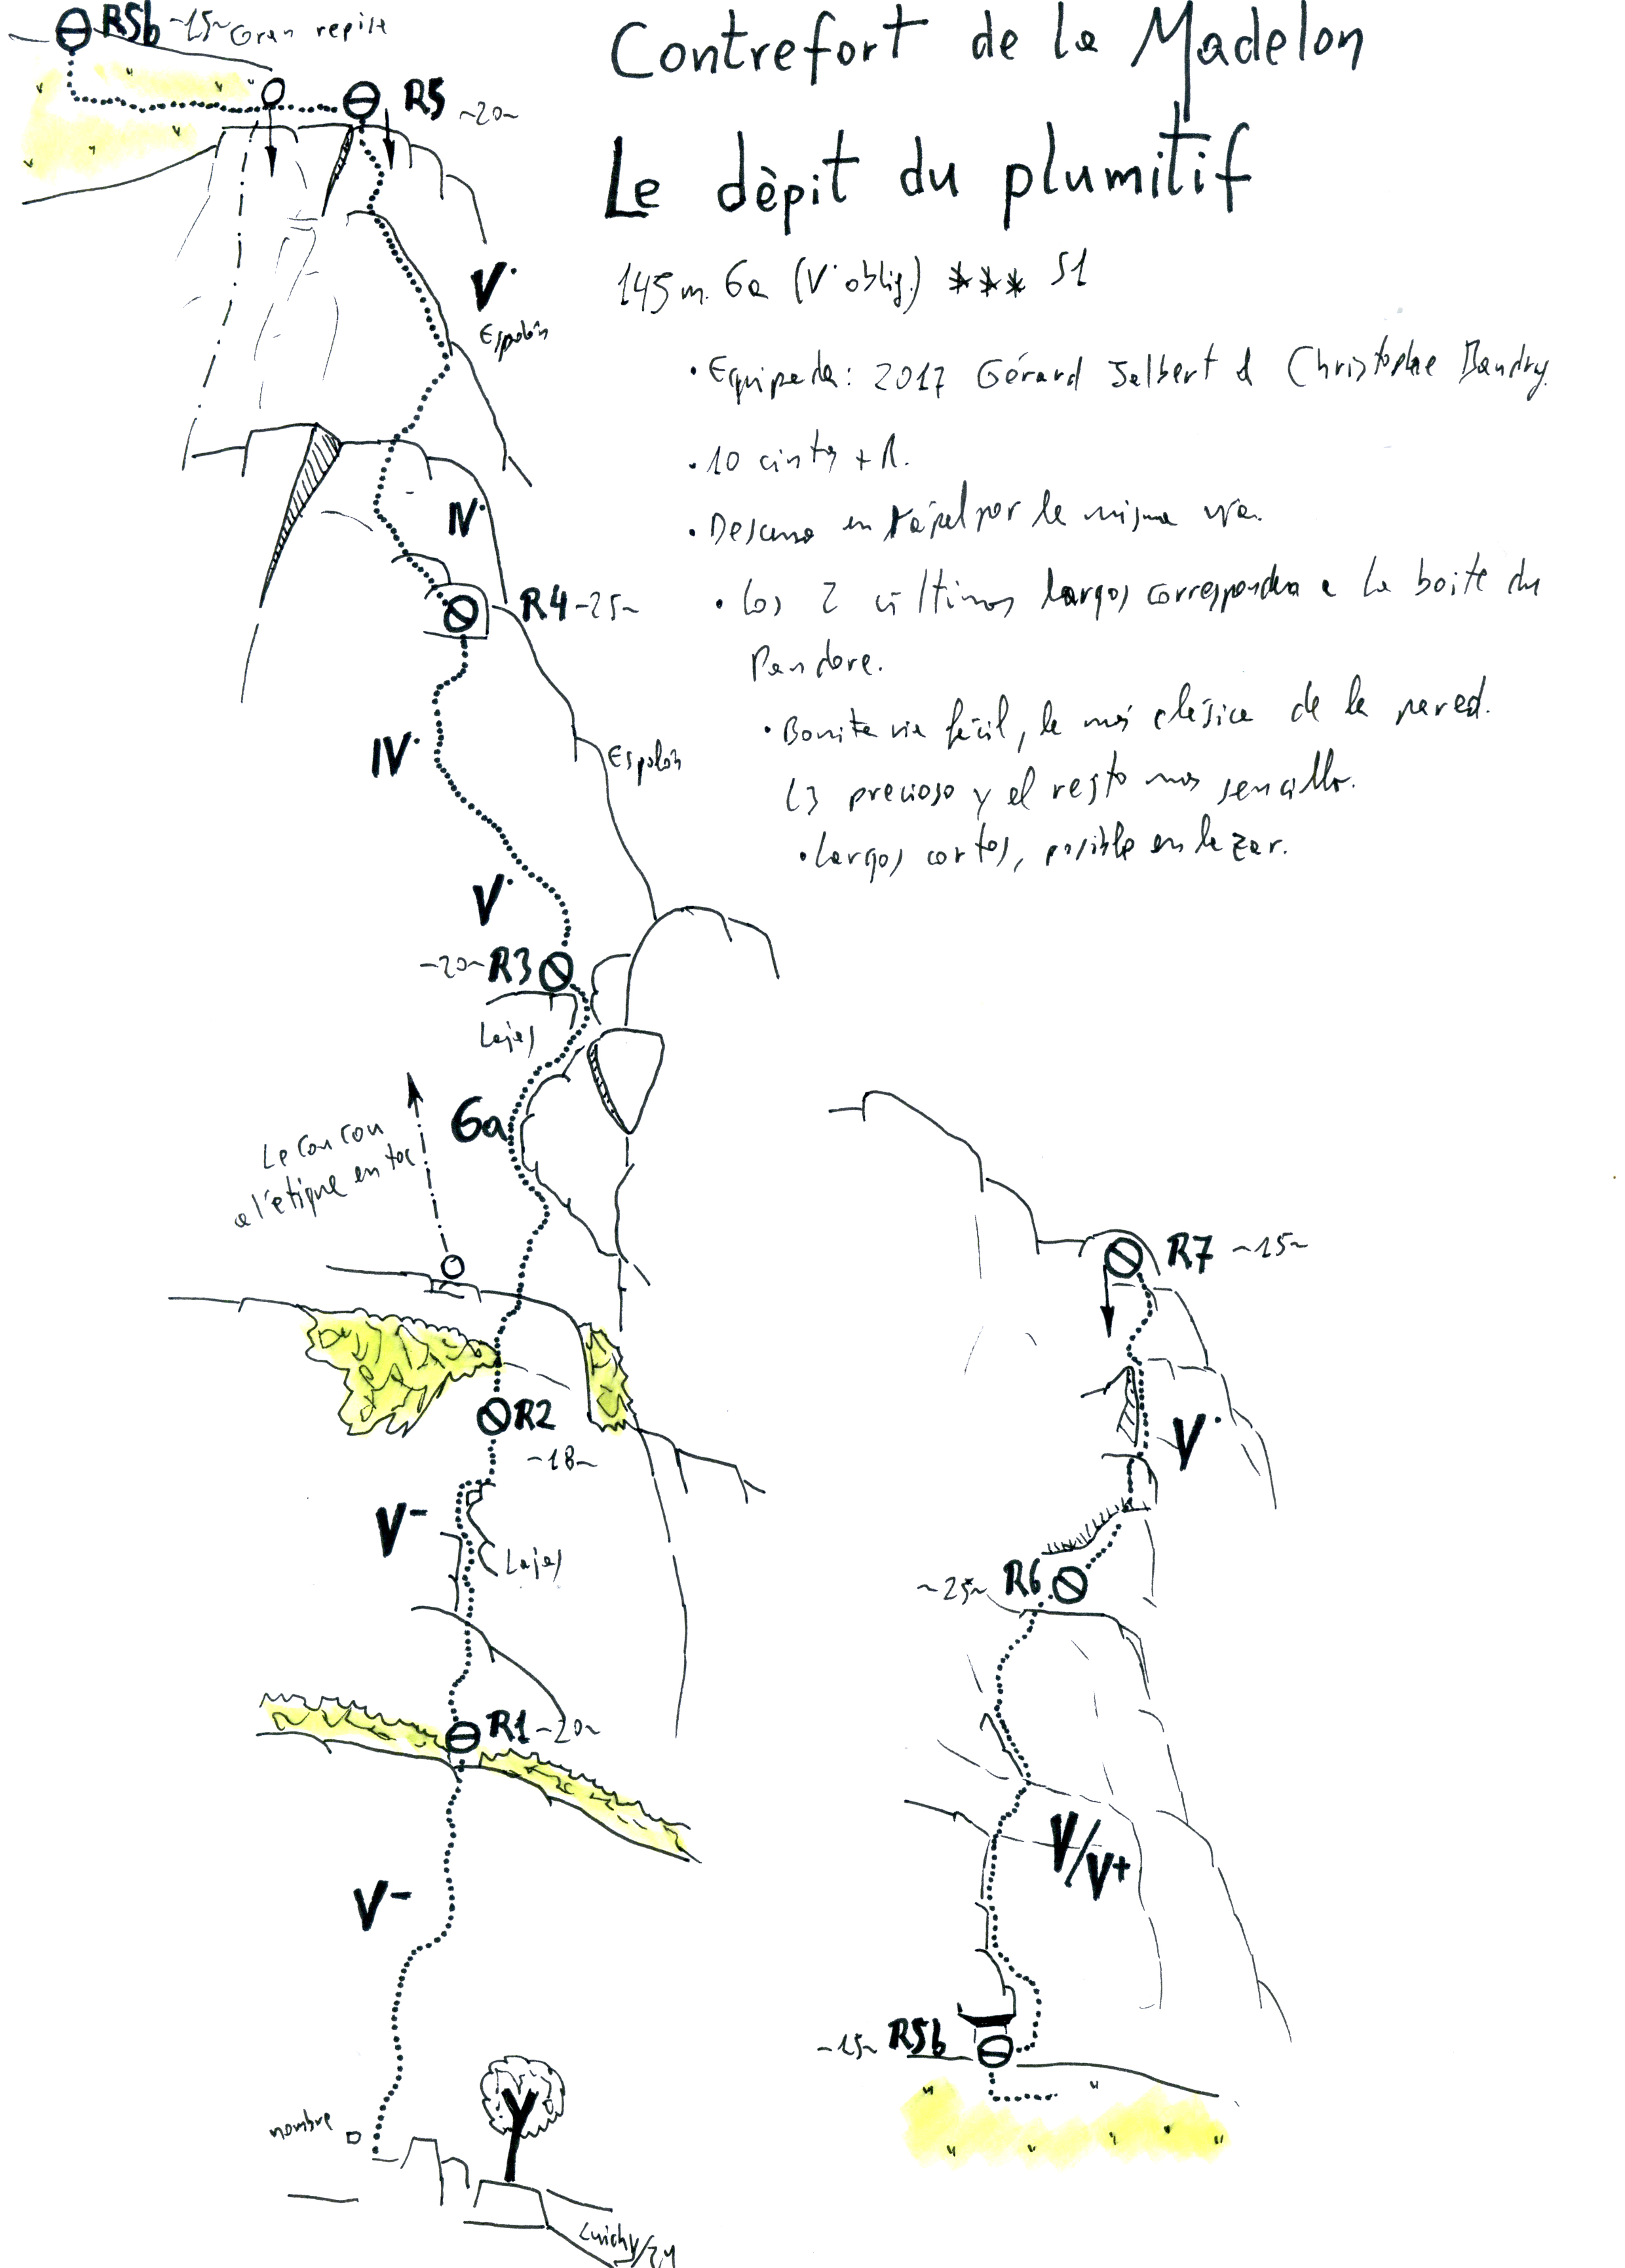 Contrefort de la Madelon
Le dèpit du plumitif
145m. 6a (V· oblig.) *** S1
· Equipada: 2017 Gérard Jalbert & Christophe Baudry.
· 10 cintas + R.
· Descenso en rápel por la misma vía.
· Los 2 últimos largos corresponden a La boite du
Pandore.
· Bonita vía fácil, la más clásica de la pared.
L3 precioso y el resto mas sencillo.
· Largos cortos, posible enlazar.
R5b ~15~ Gran repisa
R5 ~20~
V·
Espolón
IV·
R4 ~25~
IV·
Espolón
V·
~20~ R3
Lajas
6a
Le Cou cou
a l'étique en toc
R2
~18~
V-
Lajas
R1 ~20~
V-
nombre
Luichy/24
R7 ~15~
V·
~25~ R6
V/V+
~15~ R5b